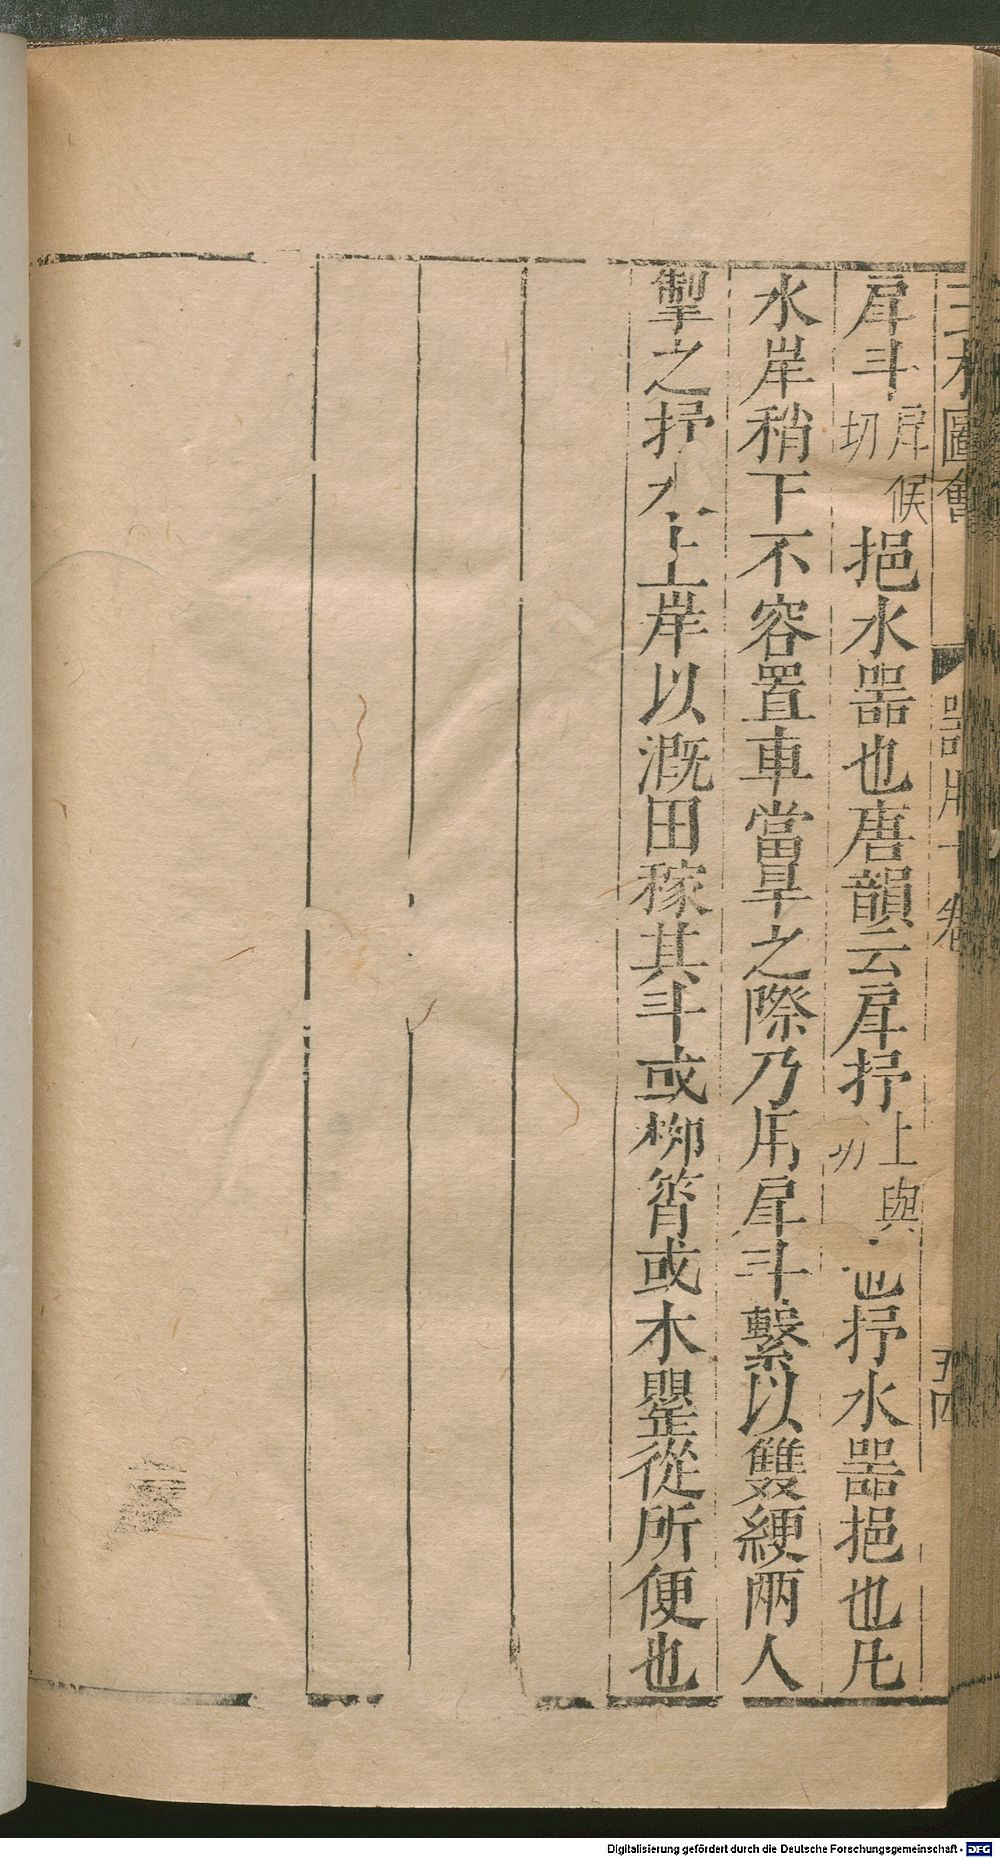 三才圖會 器用十卷
戽斗戽候切挹水器也唐韻云戽抒上與切也抒水器挹也凡
水岸稍下不容置車當旱之際乃用戽斗繫以雙綆兩人
掣之抒水上岸以溉田稼其斗或柳筲或木罌從所便也
Digitalisierung gefördert durch die Deutsche Forschungsgemeinschaft - DFG